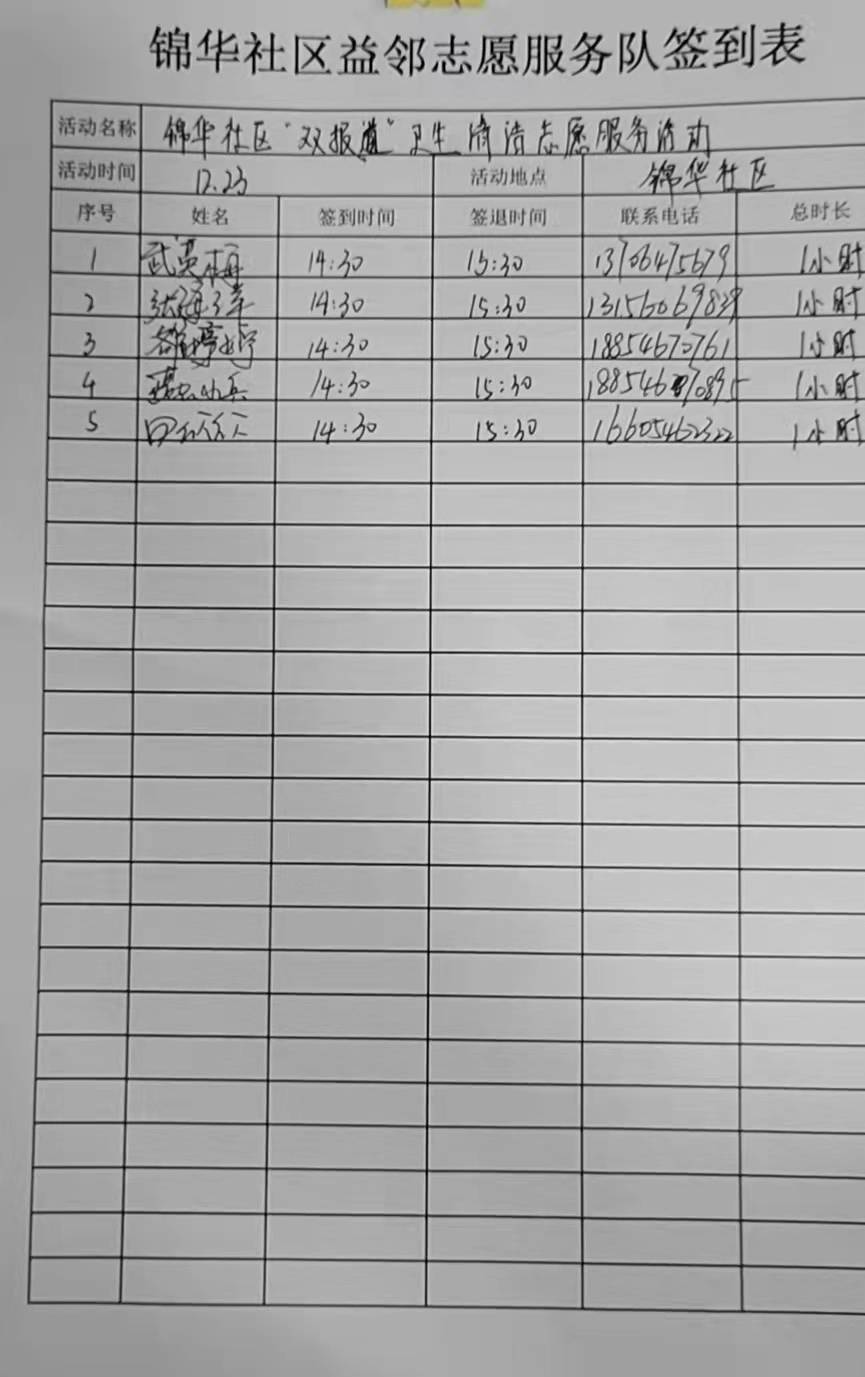 锦华社区益邻志愿服务队签到表
活动名称 锦华社区“双报道”卫生清洁志愿服务活动
活动时间 12.23 活动地点 锦华社区
序号 姓名 签到时间 签退时间 联系电话 总时长
1 武英梅 14:30 15:30 13706475679 1小时
2 14:30 15:30 13156069829 1小时
3 14:30 15:30 18854670761 1小时
4 14:30 15:30 1小时
5 14:30 15:30 16605462322 1小时